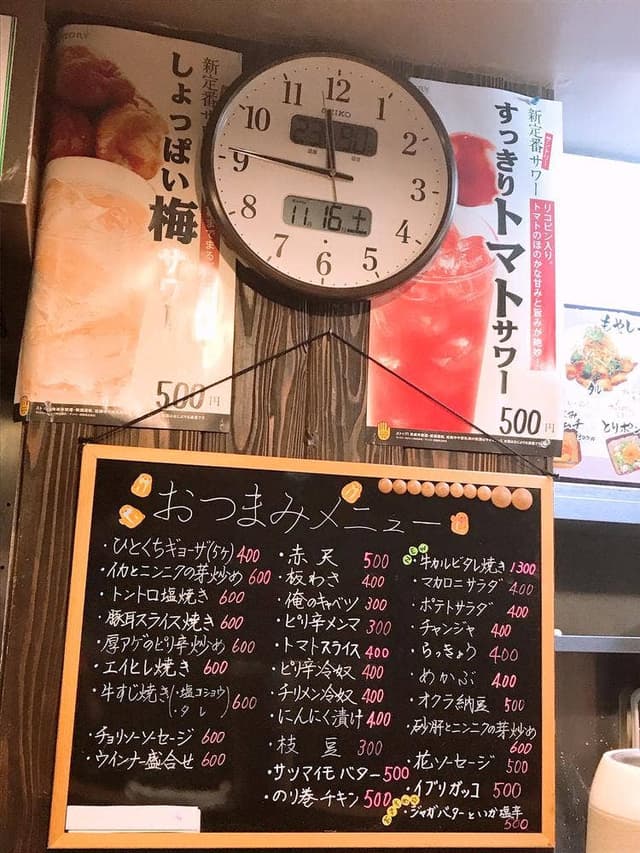 新定番サワー
しょっぱい梅サワー
500円
12
11
1
10
2
9
3
8
4
7
5
6
SEIKO
11月16土
サントリー
新定番サワー
すっきりトマトサワー
リコピン入り。
トマトのほのかな甘みと旨みが絶妙!
500円
もやし
とりポン
おつまみメニュー
・ひとくちギョーザ(5ケ) 400
・イカとニンニクの芽炒め 600
・トントロ塩焼き 600
・豚耳スライス焼き 600
・厚アゲのピリ辛炒め 600
・エイヒレ焼き 600
・牛すじ焼き(・塩コショウ ・タレ) 600
・チョリソーソーセージ 600
・ウインナー盛合せ 600
・赤天 500
・板わさ 400
・俺のキャベツ 300
・ピリ辛メンマ 300
・トマトスライス 400
・ピリ辛冷奴 400
・チリメン冷奴 400
・にんにく漬け 400
・枝豆 300
・サツマイモバター 500
・のり巻チキン 500
・牛カルビタレ焼き 1300
・マカロニサラダ 400
・ポテトサラダ 400
・チャンジャ 400
・らっきょう 400
・めかぶ 400
・オクラ納豆 500
・砂肝とニンニクの芽炒め 600
・花ソーセージ 500
・イブリガッコ 500
・ジャガバターといか塩辛 500